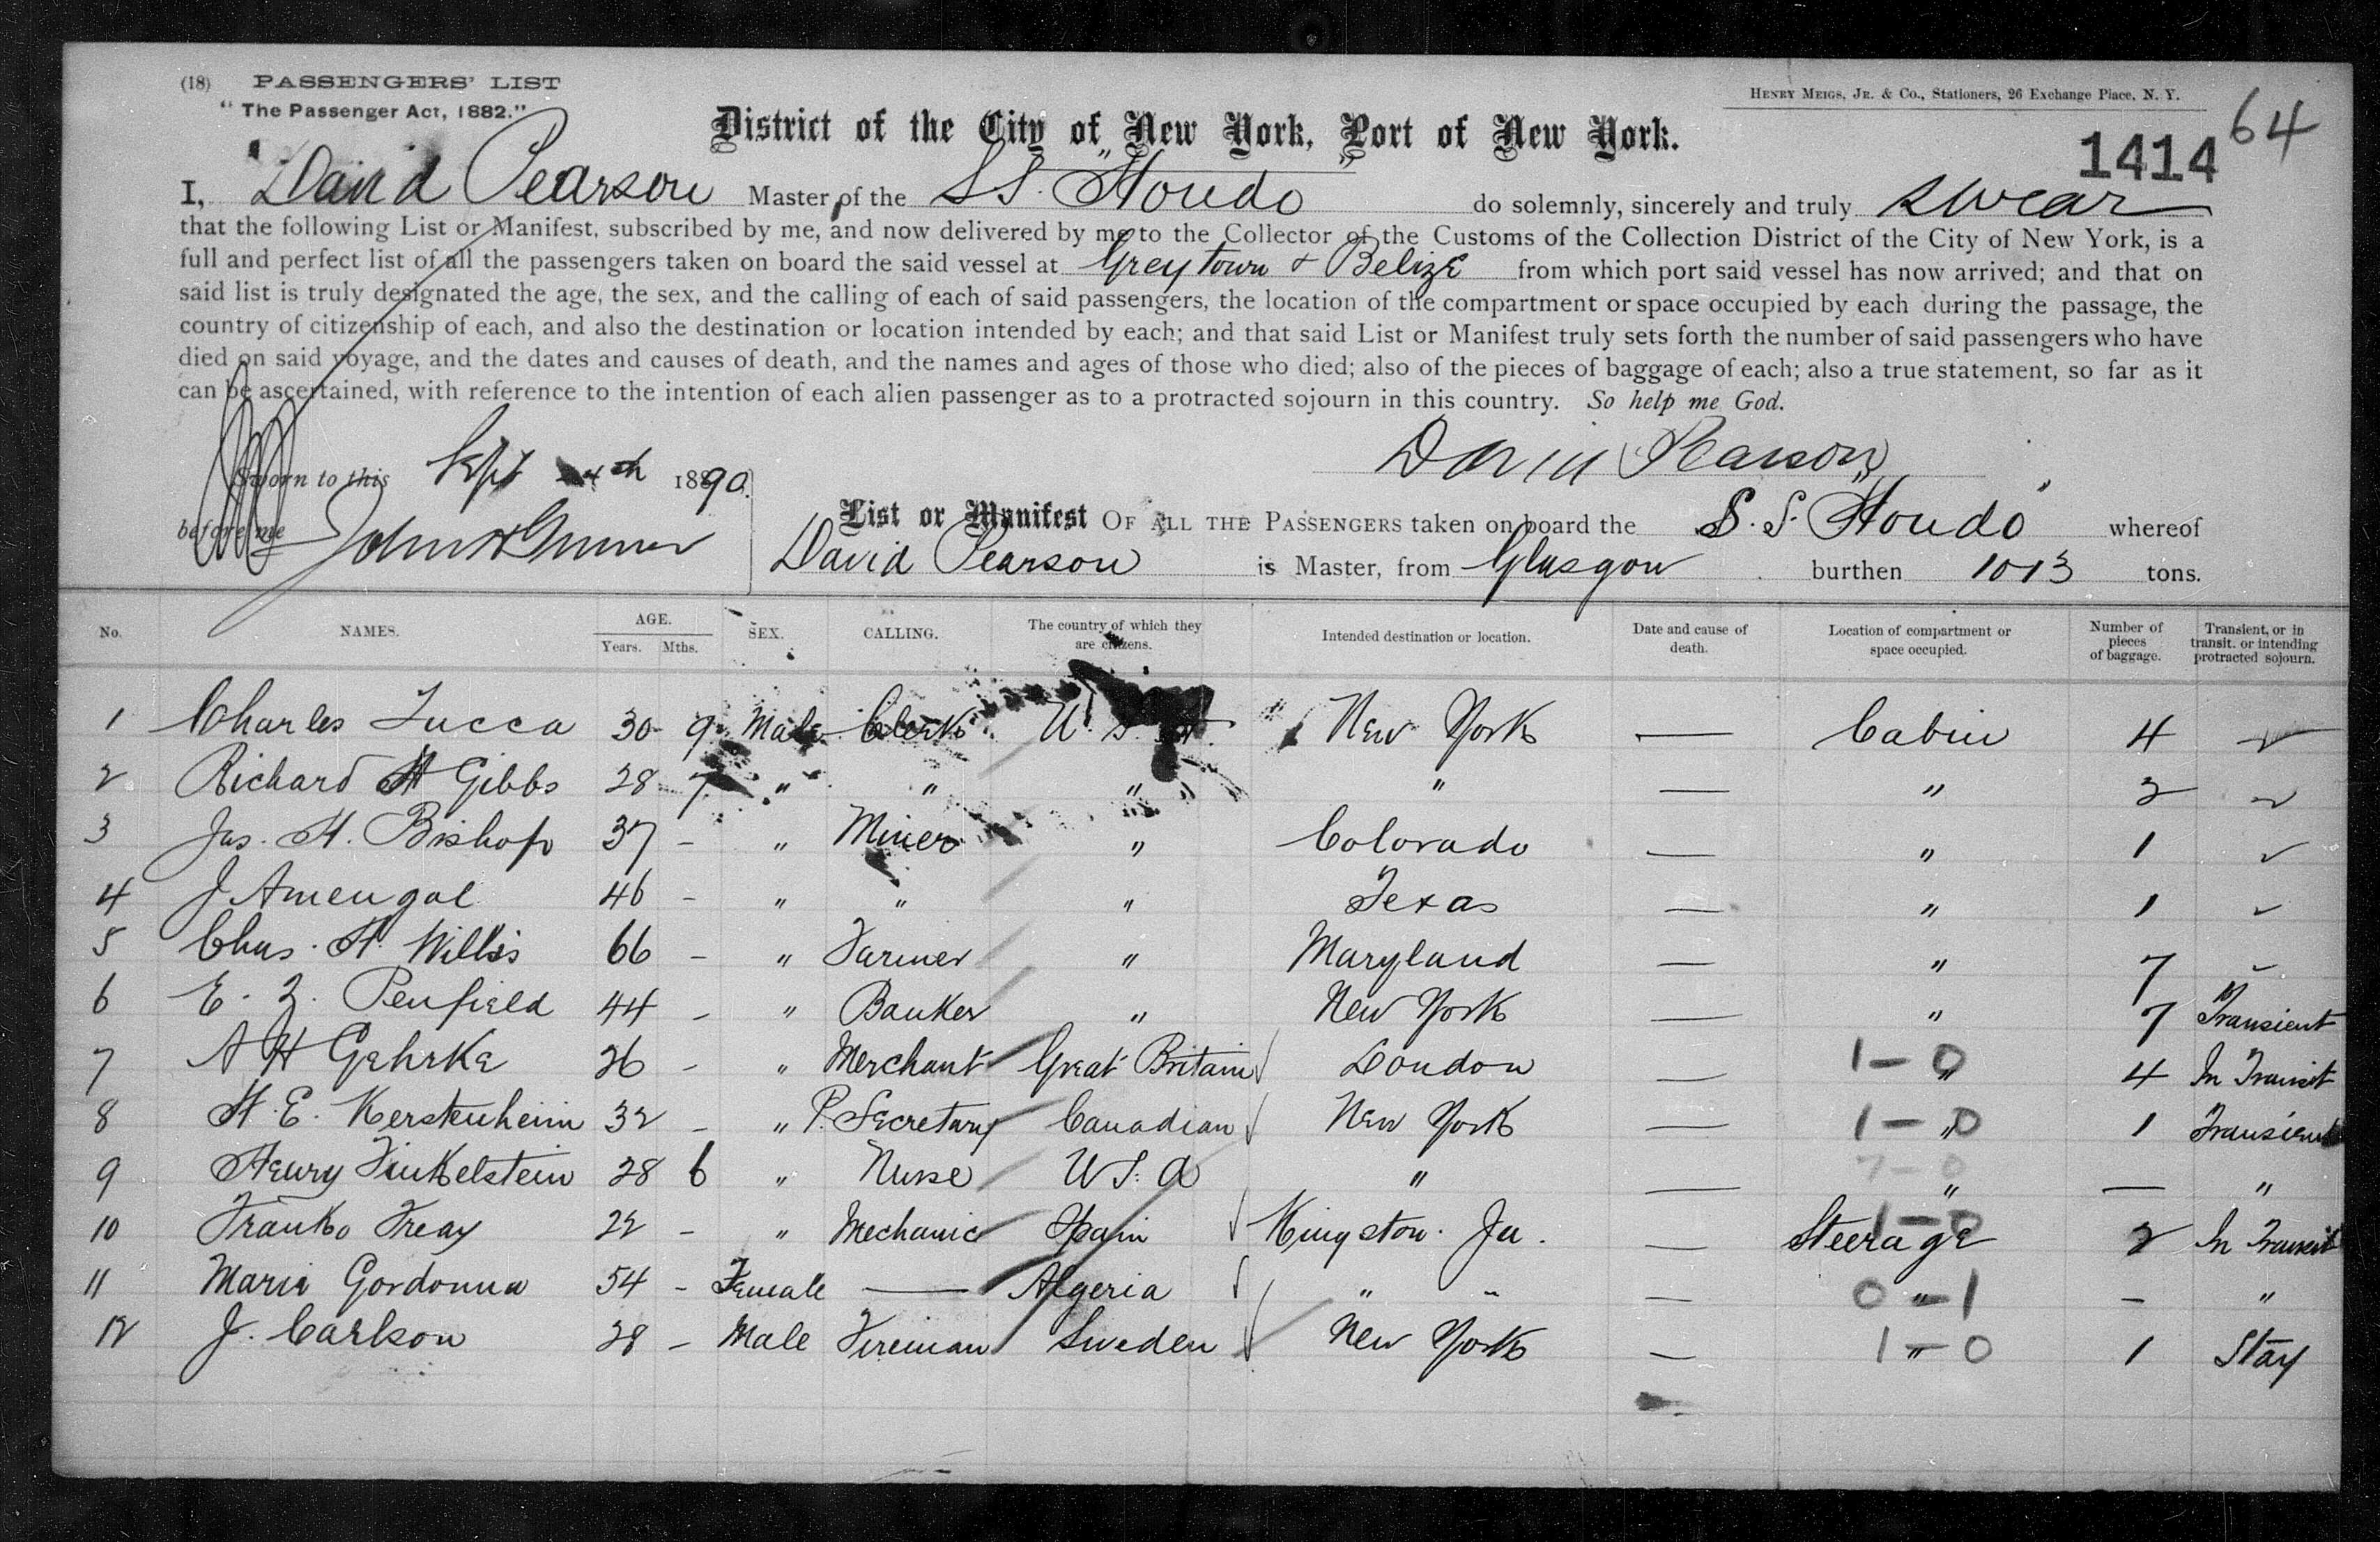 (18) PASSENGERS' LIST
"The Passenger Act, 1882."
HENRY MEIGS, JR. & CO., Stationers, 26 Exchange Place, N. Y.
64
District of the City of New York, Port of New York.
1414
I, David Pearson Master of the S S. "Hondo" do solemnly, sincerely and truly swear
that the following List or Manifest, subscribed by me, and now delivered by me to the Collector of the Customs of the Collection District of the City of New York, is a
full and perfect list of all the passengers taken on board the said vessel at Greytown & Belize from which port said vessel has now arrived; and that on
said list is truly designated the age, the sex, and the calling of each of said passengers, the location of the compartment or space occupied by each during the passage, the
country of citizenship of each, and also the destination or location intended by each; and that said List or Manifest truly sets forth the number of said passengers who have
died on said voyage, and the dates and causes of death, and the names and ages of those who died; also of the pieces of baggage of each; also a true statement, so far as it
can be ascertained, with reference to the intention of each alien passenger as to a protracted sojourn in this country. So help me God.
David Pearson
Sworn to this Sept 4th 1890.
before me John
List or Manifest OF ALL THE PASSENGERS taken on board the S. S. "Hondo" whereof
David Pearson is Master, from Glasgow burthen 1013 tons.
No. NAMES. AGE. Years. Mths. SEX. CALLING. The country of which they are citizens. Intended destination or location. Date and cause of death. Location of compartment or space occupied. Number of pieces of baggage. Transient, or in transit, or intending protracted sojourn.
1 Charles Lucca 30 - 9 Male Clerk U. S. A. New York — Cabin 4 ✓
2 Richard H Gibbs 28 - 7 " " " " — " 2 ✓
3 Jas. H. Bishop 37 - " Miner " Colorado — " 1 ✓
4 J Amengol 46 - " " " Texas — " 1 ✓
5 Chas. H. Willis 66 - " Farmer " Maryland — " 7 ✓
6 E. Z. Penfield 44 - " Banker " New York — " 7 Transient
7 A H Gehrke 26 - " Merchant Great Britain ✓ London — 1-0 " 4 In Transit
8 H. E. Kerstenheim 32 - " P. Secretary Canadian ✓ New York — 1-0 " 1 Transient
9 Henry Finkelstein 28 6 " Nurse U S. A " — 7-0 " — "
10 Franko Freay 22 - " Mechanic Spain ✓ Kingston. Ja. — 1-0 Steerage 2 In Transit
11 Maria Gordonna 54 - Female — Algeria ✓ " " — 0-1 " - "
12 J. Carlson 28 - Male Fireman Sweden ✓ New York — 1-0 " 1 Stay